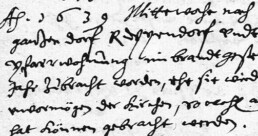 Ao. 1639 Mittwoche nach
gantzen dorf Reppendorf undt
Pfarrwohnung inn brandt geste
Jahr zubracht worden, ehe sie wied
unvermögen der Kirchen, so
hat können gebracht werden.